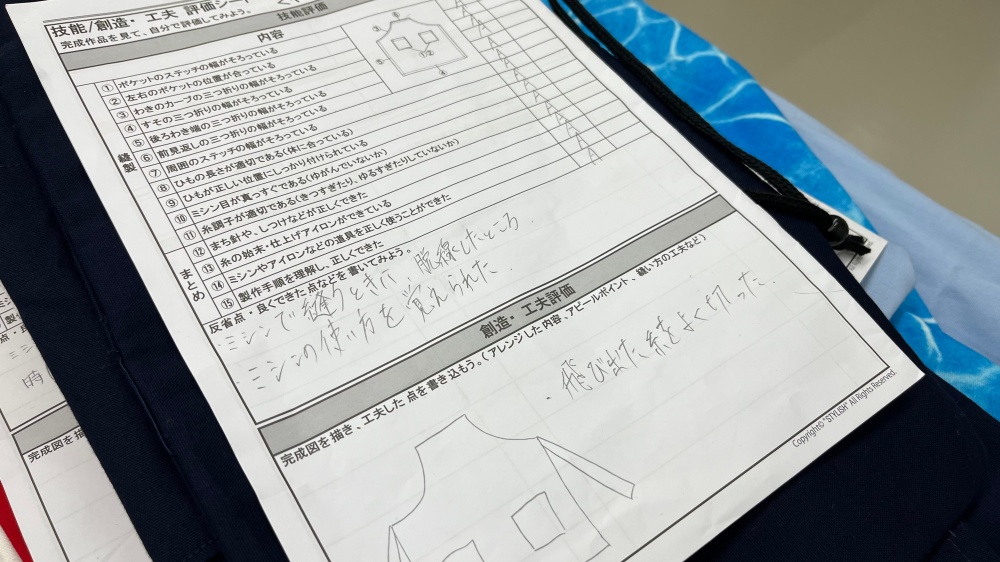 技能/創造・工夫 評価シート
完成作品を見て、自分で評価してみよう。
技能評価
内容
縫製
① ポケットのステッチの幅がそろっている
② 左右のポケットの位置が合っている
③ わきのカーブの三つ折りの幅がそろっている
④ すその三つ折りの幅がそろっている
⑤ 後ろわき端の三つ折りの幅がそろっている
⑥ 前見返しの三つ折りの幅がそろっている
⑦ 周囲のステッチの幅がそろっている
⑧ ひもの長さが適切である(体に合っている)
⑨ ひもが正しい位置にしっかり付けられている
⑩ ミシン目が真っすぐである(ゆがんでいないか)
⑪ 糸調子が適切である(きつすぎたり、ゆるすぎたりしていないか)
まとめ
⑫ まち針や、しつけなどが正しくできた
⑬ 糸の始末・仕上げアイロンができている
⑭ ミシンやアイロンなどの道具を正しく使うことができた
⑮ 製作手順を理解し、正しくできた
反省点・良くできた点などを書いてみよう。
・ミシンで縫うときに、脱線したところ。
・ミシンの使い方を覚えられた。
創造・工夫評価
完成図を描き、工夫した点を書き込もう。(アレンジした内容、アピールポイント、縫い方の工夫など)
・飛び出た糸をよく切った。
Copyright© "STYLISH" All Rights Reserved.
完成図を描き